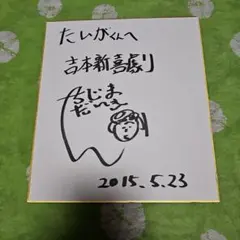 たいがくんへ
吉本新喜劇
たじま
だいき
2015.5.23